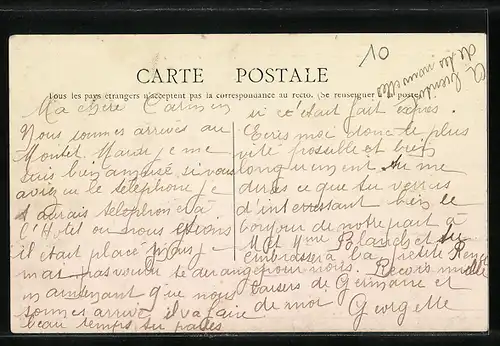 10
CARTE POSTALE
Tous les pays étrangers n'acceptent pas la correspondance au recto. (Se renseigner à la poste)
Ma chère Carmen
Nous sommes arrivés au
Montet. Mardi je me
suis bien amusé si vous
aviez eu le téléphone je
t'aurais téléphoner à
l'Hotel ou nous étions
il était placé mais je
n'ai pas voulu te déranger
maintenant que nous
sommes arrivé il va faire
beau temps tu parles
si c'était fait exprès.
Ecres moi donc le plus
vite possible et bien
longuement tu me
diras ce que tu verras
d'interressant bien le
bonjour de notre part à
M et Mme Blanchet
embrasser la petite
pour nous. Recois mille
baisers de Germaine et
de moi
Georgette
de tes nouvelles